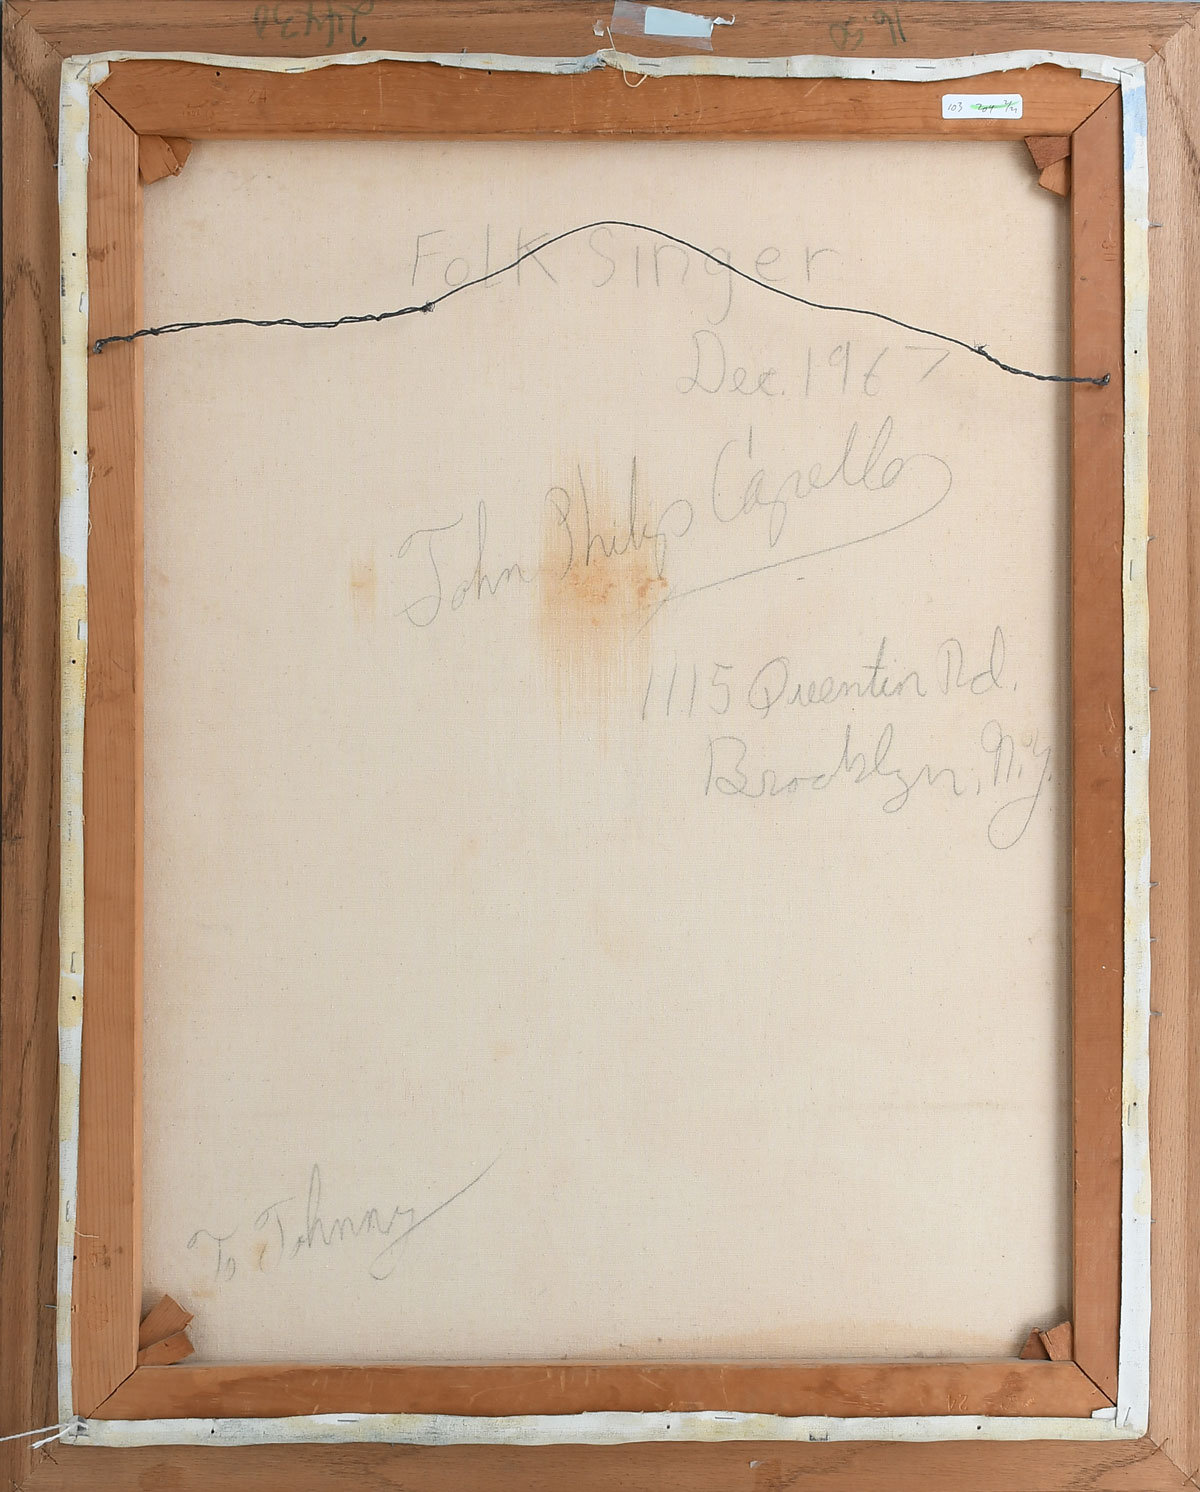 24x30
16.50
103 204 3/21
FolK Singer
Dec. 1967
John Philip Capello
1115 Quentin Rd.
Brooklyn, N.Y.
To Johnny